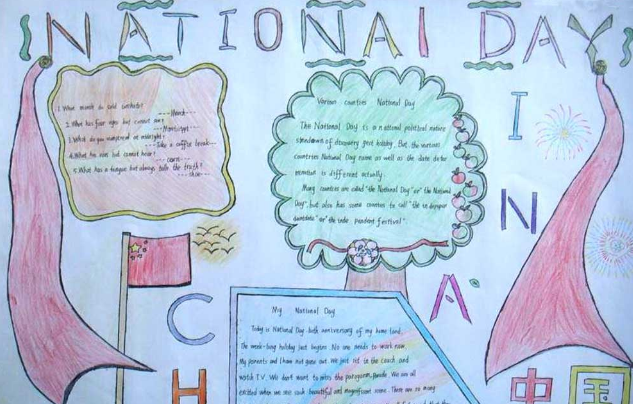 NATIONAL DAY
IN
CH
A
中国
1. What month do
2. What has four eyes but cannot see?
Mississippi
3. What do you at midnight?
Take a coffee break
4. What has ears but cannot hear?
corn
5. What has a tongue but always the truth?
shoe
Various countries National Day
The National Day is a national political nature
of discovery year holiday. But the various
countries National Day name as well as the date to be
is different actually.
Many countries are called "the National Day" or "the National
Day", but also has some countries to call "the
" or "the inde pendent festival".
My National Day
Today is National Day- anniversary of my home land.
The week-long holiday just begins. No one needs to work now.
My parents and I have not gone out. We just sit in the couch and
watch T.V. We don't want to miss the parade. We are all
excited when we see such beautiful and magnificent scene. There are so many